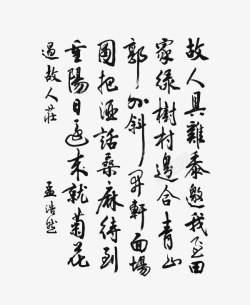 故人具雞黍邀我至田
家綠樹村邊合青山
郭外斜開軒面場
圃把酒話桑麻待到
重陽日還來就菊花
過故人莊
孟浩然